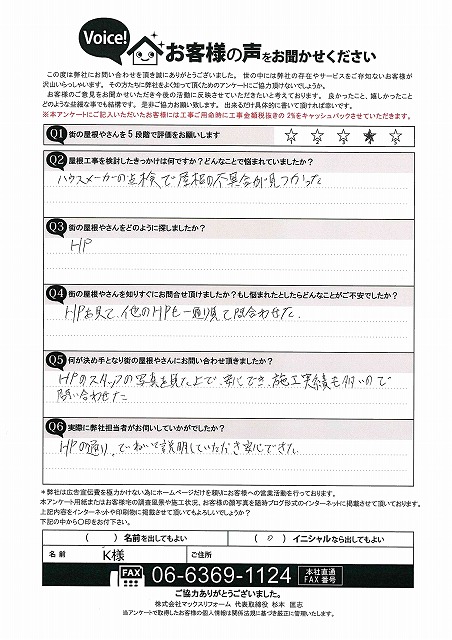 Voice!
お客様の声をお聞かせください
この度は弊社にお問い合わせを頂き誠にありがとうございました。世の中には弊社の存在やサービスをご存知ないお客様が
沢山いらっしゃいます。その方たちに弊社をよく知って頂くためのアンケートにご協力頂けないでしょうか。
お客様のご意見をお聞かせいただき今後の活動に反映させていただきたいと考えております。良かったこと、嬉しかったこと
どのような些細な事でも結構です。是非ご協力お願い致します。出来るだけ具体的に書いて頂ければ幸いです。
※本アンケートにご記入いただいたお客様には工事ご用命時に工事金額税抜きの2%をキャッシュバックさせていただきます。
Q1 街の屋根やさんを5段階で評価をお願いします ☆ ☆ ☆ ★ ☆
Q2 屋根工事を検討したきっかけは何ですか？どんなことで悩まれていましたか？
ハウスメーカーの点検で屋根の不具合が見つかった
Q3 街の屋根やさんをどのように探しましたか？
HP
Q4 街の屋根やさんを知りすぐにお問合せ頂けましたか？もし悩まれたとしたらどんなことがご不安でしたか？
HPを見て、他のHPも一通り見て問合わせた。
Q5 何が決め手となり街の屋根やさんにお問い合わせ頂きましたか？
HPのスタッフの写真を見た上で、安心でき、施工実績も多いので
問い合わせた
Q6 実際に弊社担当者がお伺いしていかがでしたか？
HPの通り、ていねいに説明していただき安心できた。
＊弊社は広告宣伝費を極力かけない為にホームページだけを頼りにお客様への営業活動を行っております。
本アンケート用紙またはお客様宅の調査風景や施工状況、お客様の顔写真を随時ブログ形式のインターネットに掲載させて頂いております。
上記内容をインターネットや印刷物に掲載させて頂いてもよろしいでしょうか？
下記の中から〇印をお付下さい。
（ ）名前を出してもよい （ ○ ）イニシャルなら出してもよい
名前 K様 ご住所
FAX 06-6369-1124 本社直通
FAX番号
ご協力ありがとうございました。
株式会社マックスリフォーム 代表取締役 杉本 匡志
当アンケートで取得したお客様の個人情報は関係法規に基づき厳正に管理いたします。